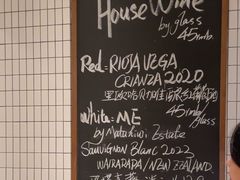 House Wine
by glass
45rmb.
Red - RIOJA VEGA
CRIANZA 2020
45rmb/
glass
White: ME
by Matahiwi Estate
SAUVIGNON BLANC 2022
WAIRARAPA/NEW ZEALAND